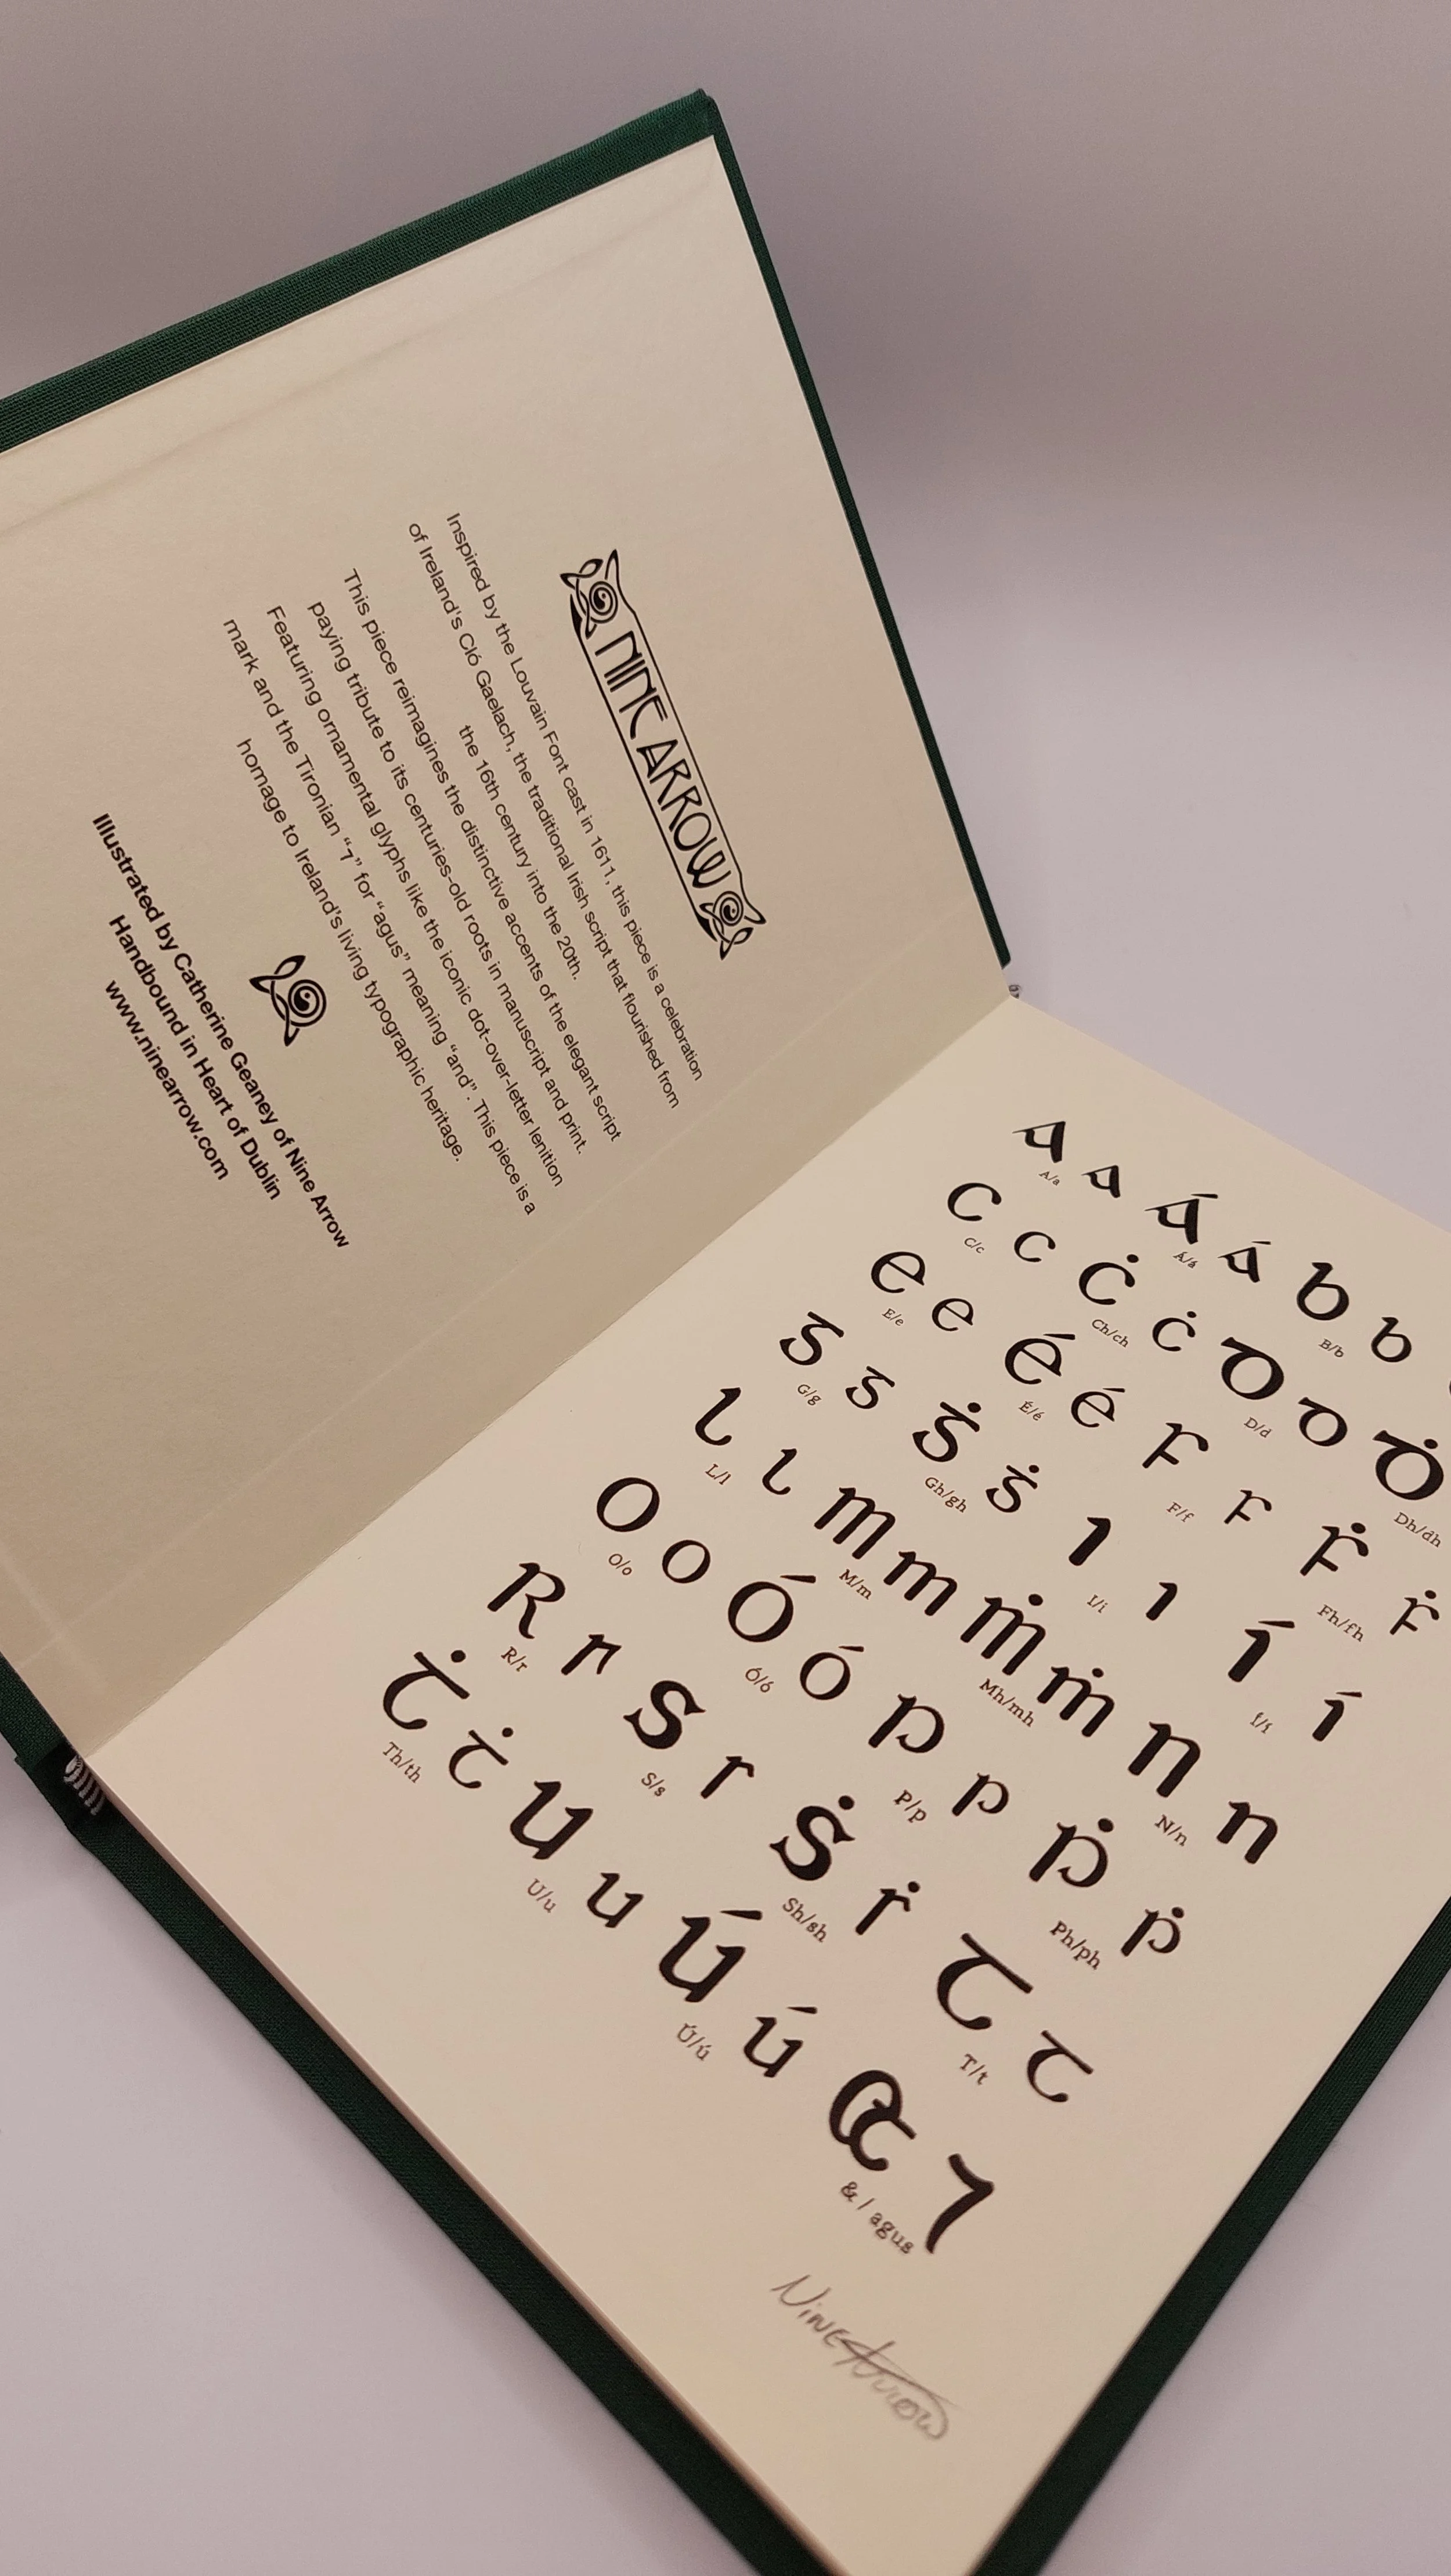 NINE ARROW
Inspired by the Louvain Font cast in 1611, this piece is a celebration
of Ireland's Cló Gaelach, the traditional Irish script that flourished from
the 16th century into the 20th.
This piece reimagines the distinctive accents of the elegant script
paying tribute to its centuries-old roots in manuscript and print.
Featuring ornamental glyphs like the iconic dot-over-letter lenition
mark and the Tironian “⁊” for “agus” meaning “and”. This piece is a
homage to Ireland's living typographic heritage.
Illustrated by Catherine Geaney of Nine Arrow
Handbound in Heart of Dublin
www.ninearrow.com
A a Á á B b
A/a Á/á B/b
C c Ċ ċ D d Ḋ
C/c Ch/ch D/d Dh/dh
E e É é F f Ḟ ḟ
E/e É/é F/f Fh/fh
G g Ġ ġ I ı Í í
G/g Gh/gh I/i Í/í
L l M m Ṁ ṁ N n
L/l M/m Mh/mh N/n
O o Ó ó P p Ṗ ṗ
O/o Ó/ó P/p Ph/ph
R r S s Ṡ ṡ T t
R/r S/s Sh/sh T/t
Ṫ ṫ U u Ú ú & ⁊
Th/th U/u Ú/ú & / agus
Nine Arrow